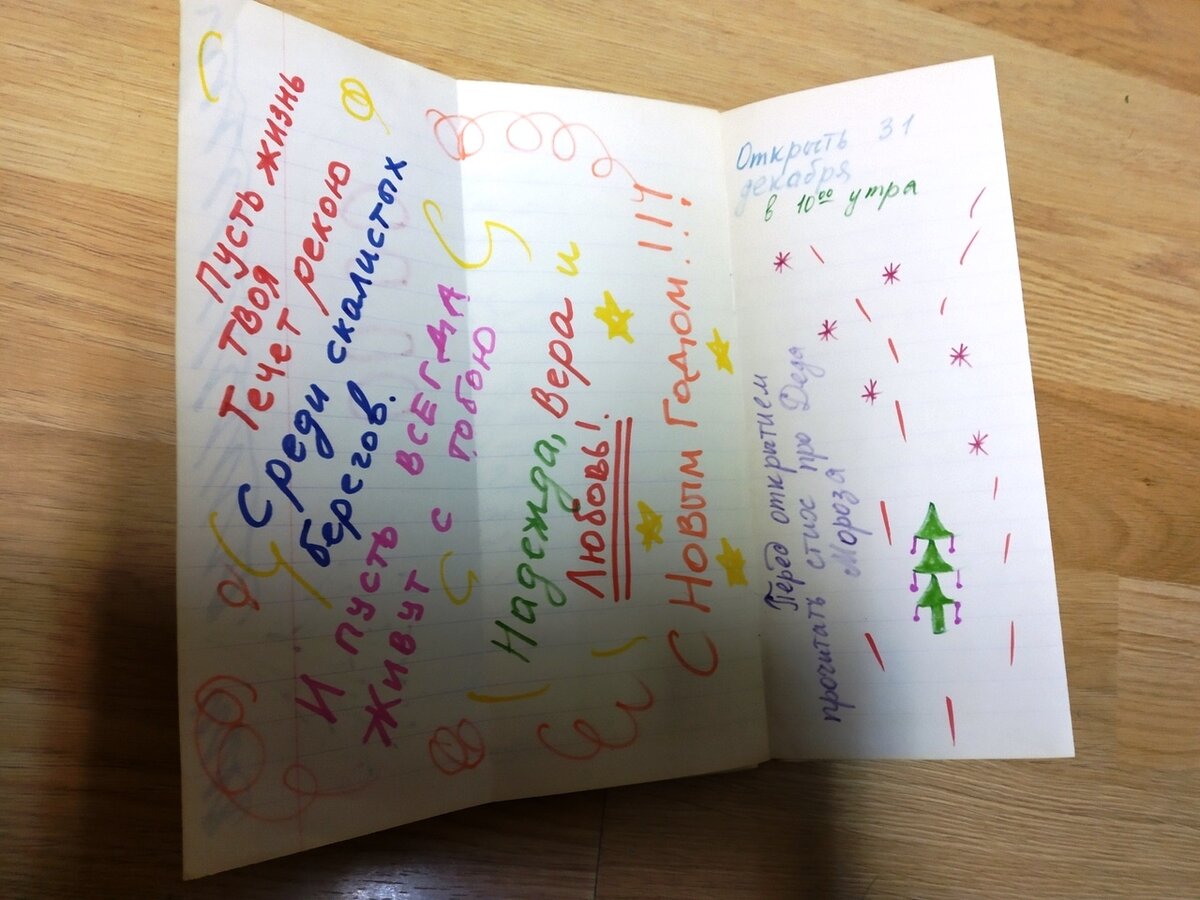 Пусть жизнь
твоя
Течет рекою
Среди скалистых
берегов.
И пусть всегда
живут с тобою
Надежда, Вера и
Любовь!
С Новым Годом!!!
Открыть 31
декабря
в 10⁰⁰ утра
Перед открытием
прочитать стих про Деда
Мороза